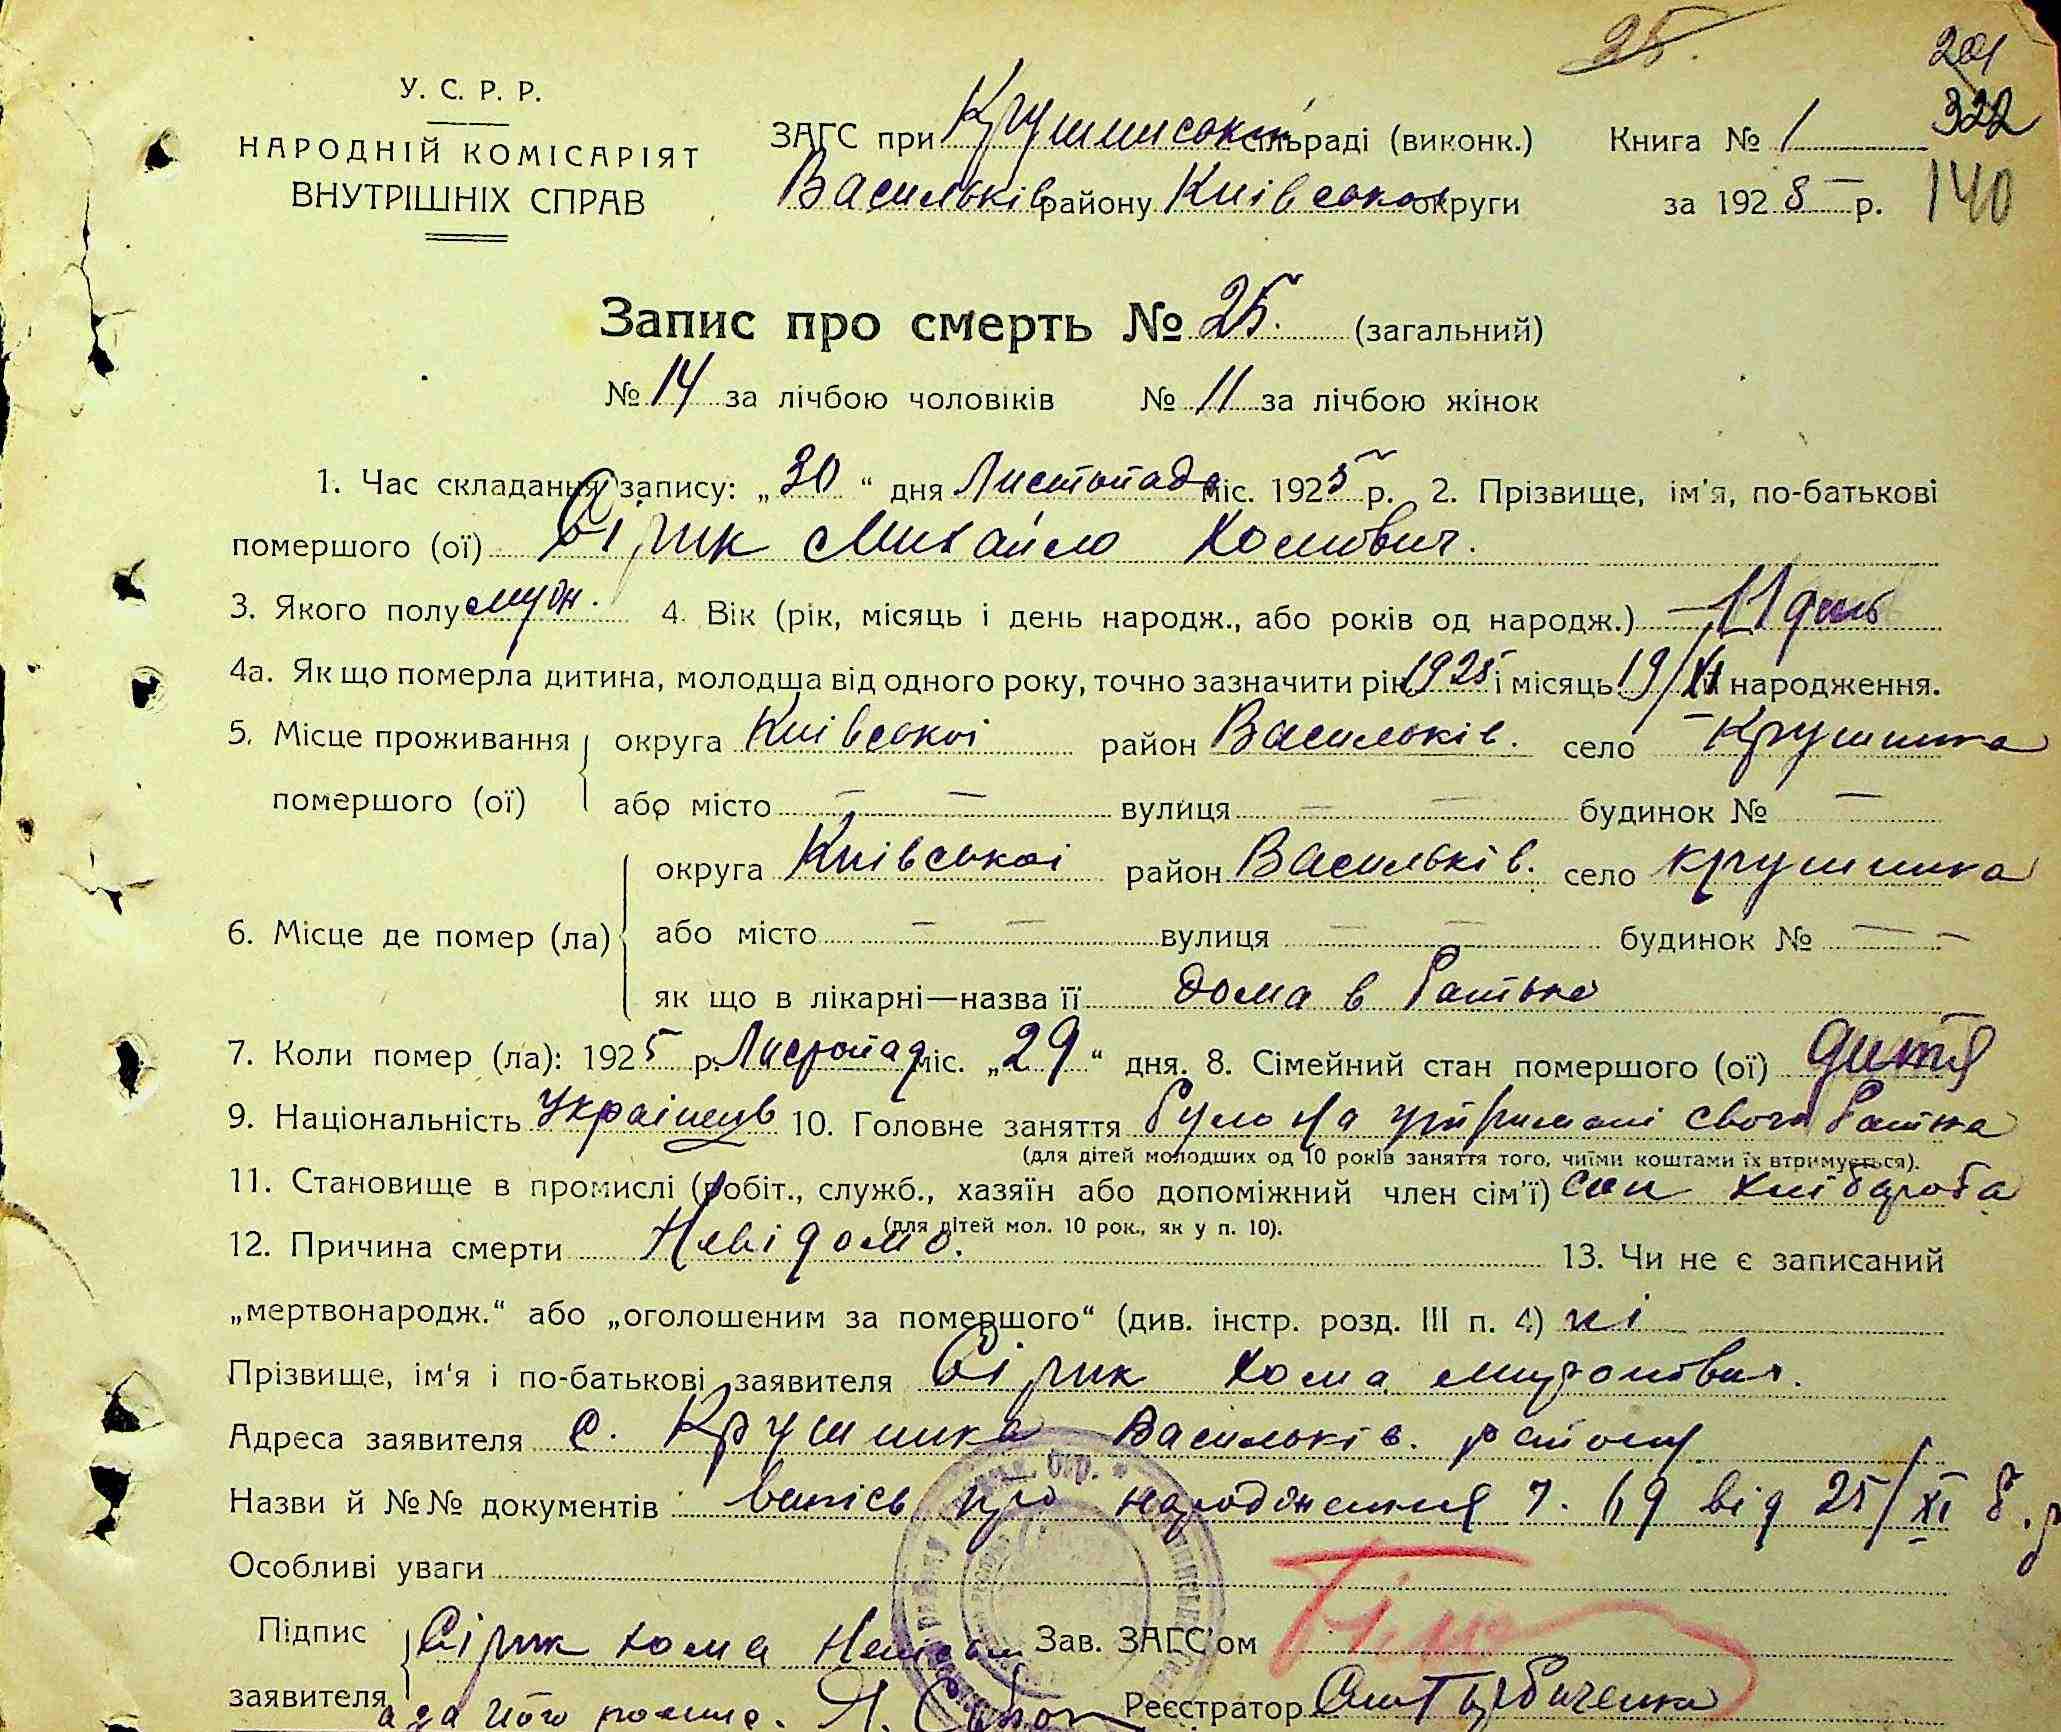 25.
201
322
140
У. С. Р. Р.
НАРОДНІЙ КОМІСАРІЯТ
ВНУТРІШНІХ СПРАВ
ЗАГС при Крушинській сільраді (виконк.) Книга № 1
Васильків району Київської округи за 1925 р.
Запис про смерть № 25. (загальний)
№ 14 за лічбою чоловіків № 11 за лічбою жінок
1. Час складання запису: „30“ дня Листопада міс. 1925 р. 2. Прізвище, ім'я, по-батькові
помершого (ої) Сірик Михайло Хомович.
3. Якого полу муж. 4. Вік (рік, місяць і день народж., або років од народж.) 11 день
4а. Як що померла дитина, молодща від одного року, точно зазначити рік 1925 і місяць 19/XI народження.
5. Місце проживання помершого (ої) округа Київської район Васильків. село Крушинка
або місто — — вулиця — — будинок № —
6. Місце де помер (ла) округа Київської район Васильків. село Крушинка
або місто — — вулиця — — будинок № — —
як що в лікарні—назва її дома в батька
7. Коли помер (ла): 1925 р. Листопад міс. „29“ дня. 8. Сімейний стан помершого (ої) дитя
9. Національність Украінець 10. Головне заняття було на утримані свого батька
(для дітей молодших од 10 років заняття того, чиїми коштами їх втримується).
11. Становище в промислі (робіт., служб., хазяїн або допоміжний член сім'ї) син хлібороба
(для дітей мол. 10 рок., як у п. 10).
12. Причина смерти Невідомо. 13. Чи не є записаний
„мертвонародж.“ або „оголошеним за помершого“ (див. інстр. розд. III п. 4) ні
Прізвище, ім'я і по-батькові заявителя Сірик Хома Миронович.
Адреса заявителя с. Крушинка Васильків. району
Назви й №№ документів запісь про народження ч. 69 від 25/XI б. р.
Особливі уваги
Підпис заявителя Сірик Хома
Зав. ЗАГС'ом
а за його росписа.
Реєстратор